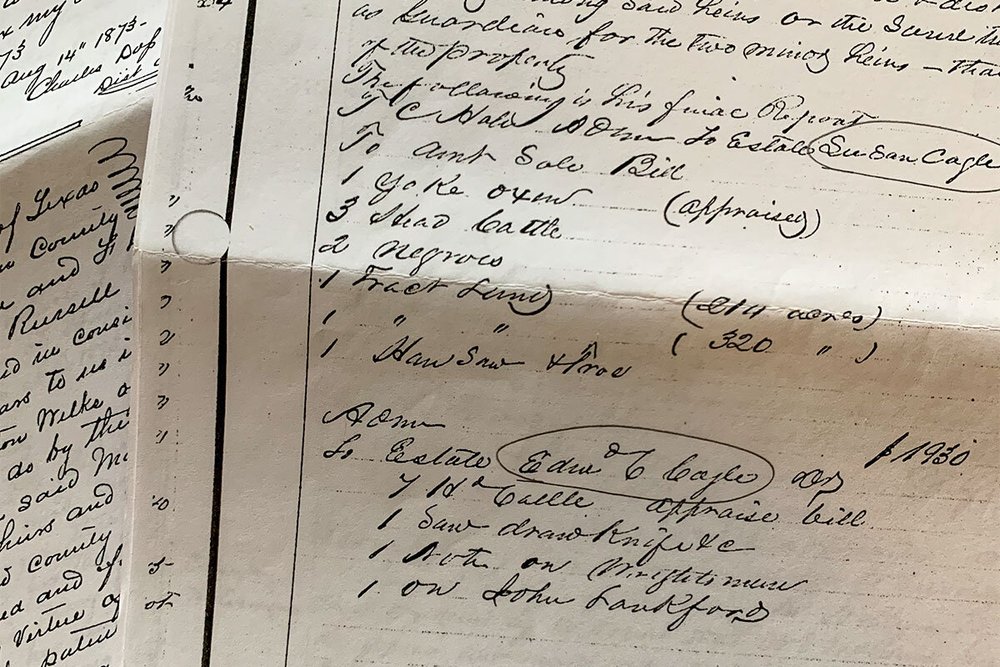 x my
73
Aug 14" 1873-
Charles
Dist
of Texas
County
and
Russell
ed in consi
ars to us i
on Wilke a
do by the
said
heirs and
d County
ed and
Virtue of
paten
among said heirs or the
as Guardian for the two minor heirs - tha
of the property
The following is his final Report
T C Hale Adm To Estate Susan Cagle
To amt Sale Bill
1 Yoke oxen (appraised)
3 Head Cattle
2 Negroes
1 Tract Land (214 acres)
1 " " ( 320 " )
1 Hand Saw &
Adm $ 1930
To Estate Edwd C Cagle
7 Hd Cattle appraise bill
1 Saw draw Knife &c
1 Note on
1 on John Lankford